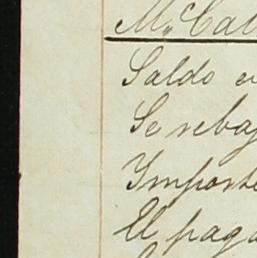 Mc Cal
Saldo e
Se rebaj
Importe
El paga